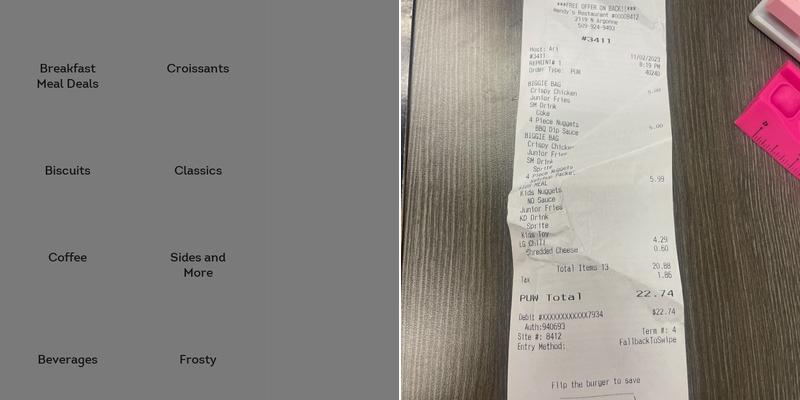 Breakfast
Meal Deals
Croissants
Biscuits
Classics
Coffee
Sides and
More
Beverages
Frosty
***FREE OFFER ON BACK!!***
Wendy's Restaurant #00008412
2119 N Argonne
509-924-9403
#3411
Host: Ari
#3411
REPRINT# 1
Order Type: PUW
11/02/2023
8:19 PM
40240
BIGGIE BAG
Crispy Chicken
Junior Fries
SM Drink
Coke
4 Piece Nuggets
BBQ Dip Sauce
5.00
BIGGIE BAG 5.00
Crispy Chicken
Junior Fries
SM Drink
Sprite
4 Piece Nuggets
MEAL 5.99
Kids Nuggets
NO Sauce
Junior Fries
KD Drink
Sprite
Kids Toy
LG Chili 4.29
Shredded Cheese 0.60
Total Items 13 20.88
Tax 1.86
PUW Total 22.74
Debit #XXXXXXXXXXXX7934 $22.74
Auth:940693
Site #: 8412 Term #: 4
Entry Method: FallbackToSwipe
Flip the burger to save